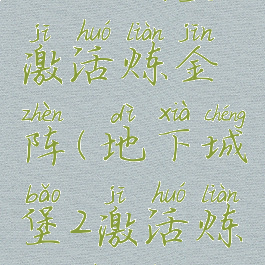 jī huó liàn jīn
激活炼金
zhèn dì xià chéng
阵(地下城
bǎo jī huó liàn
堡2激活炼